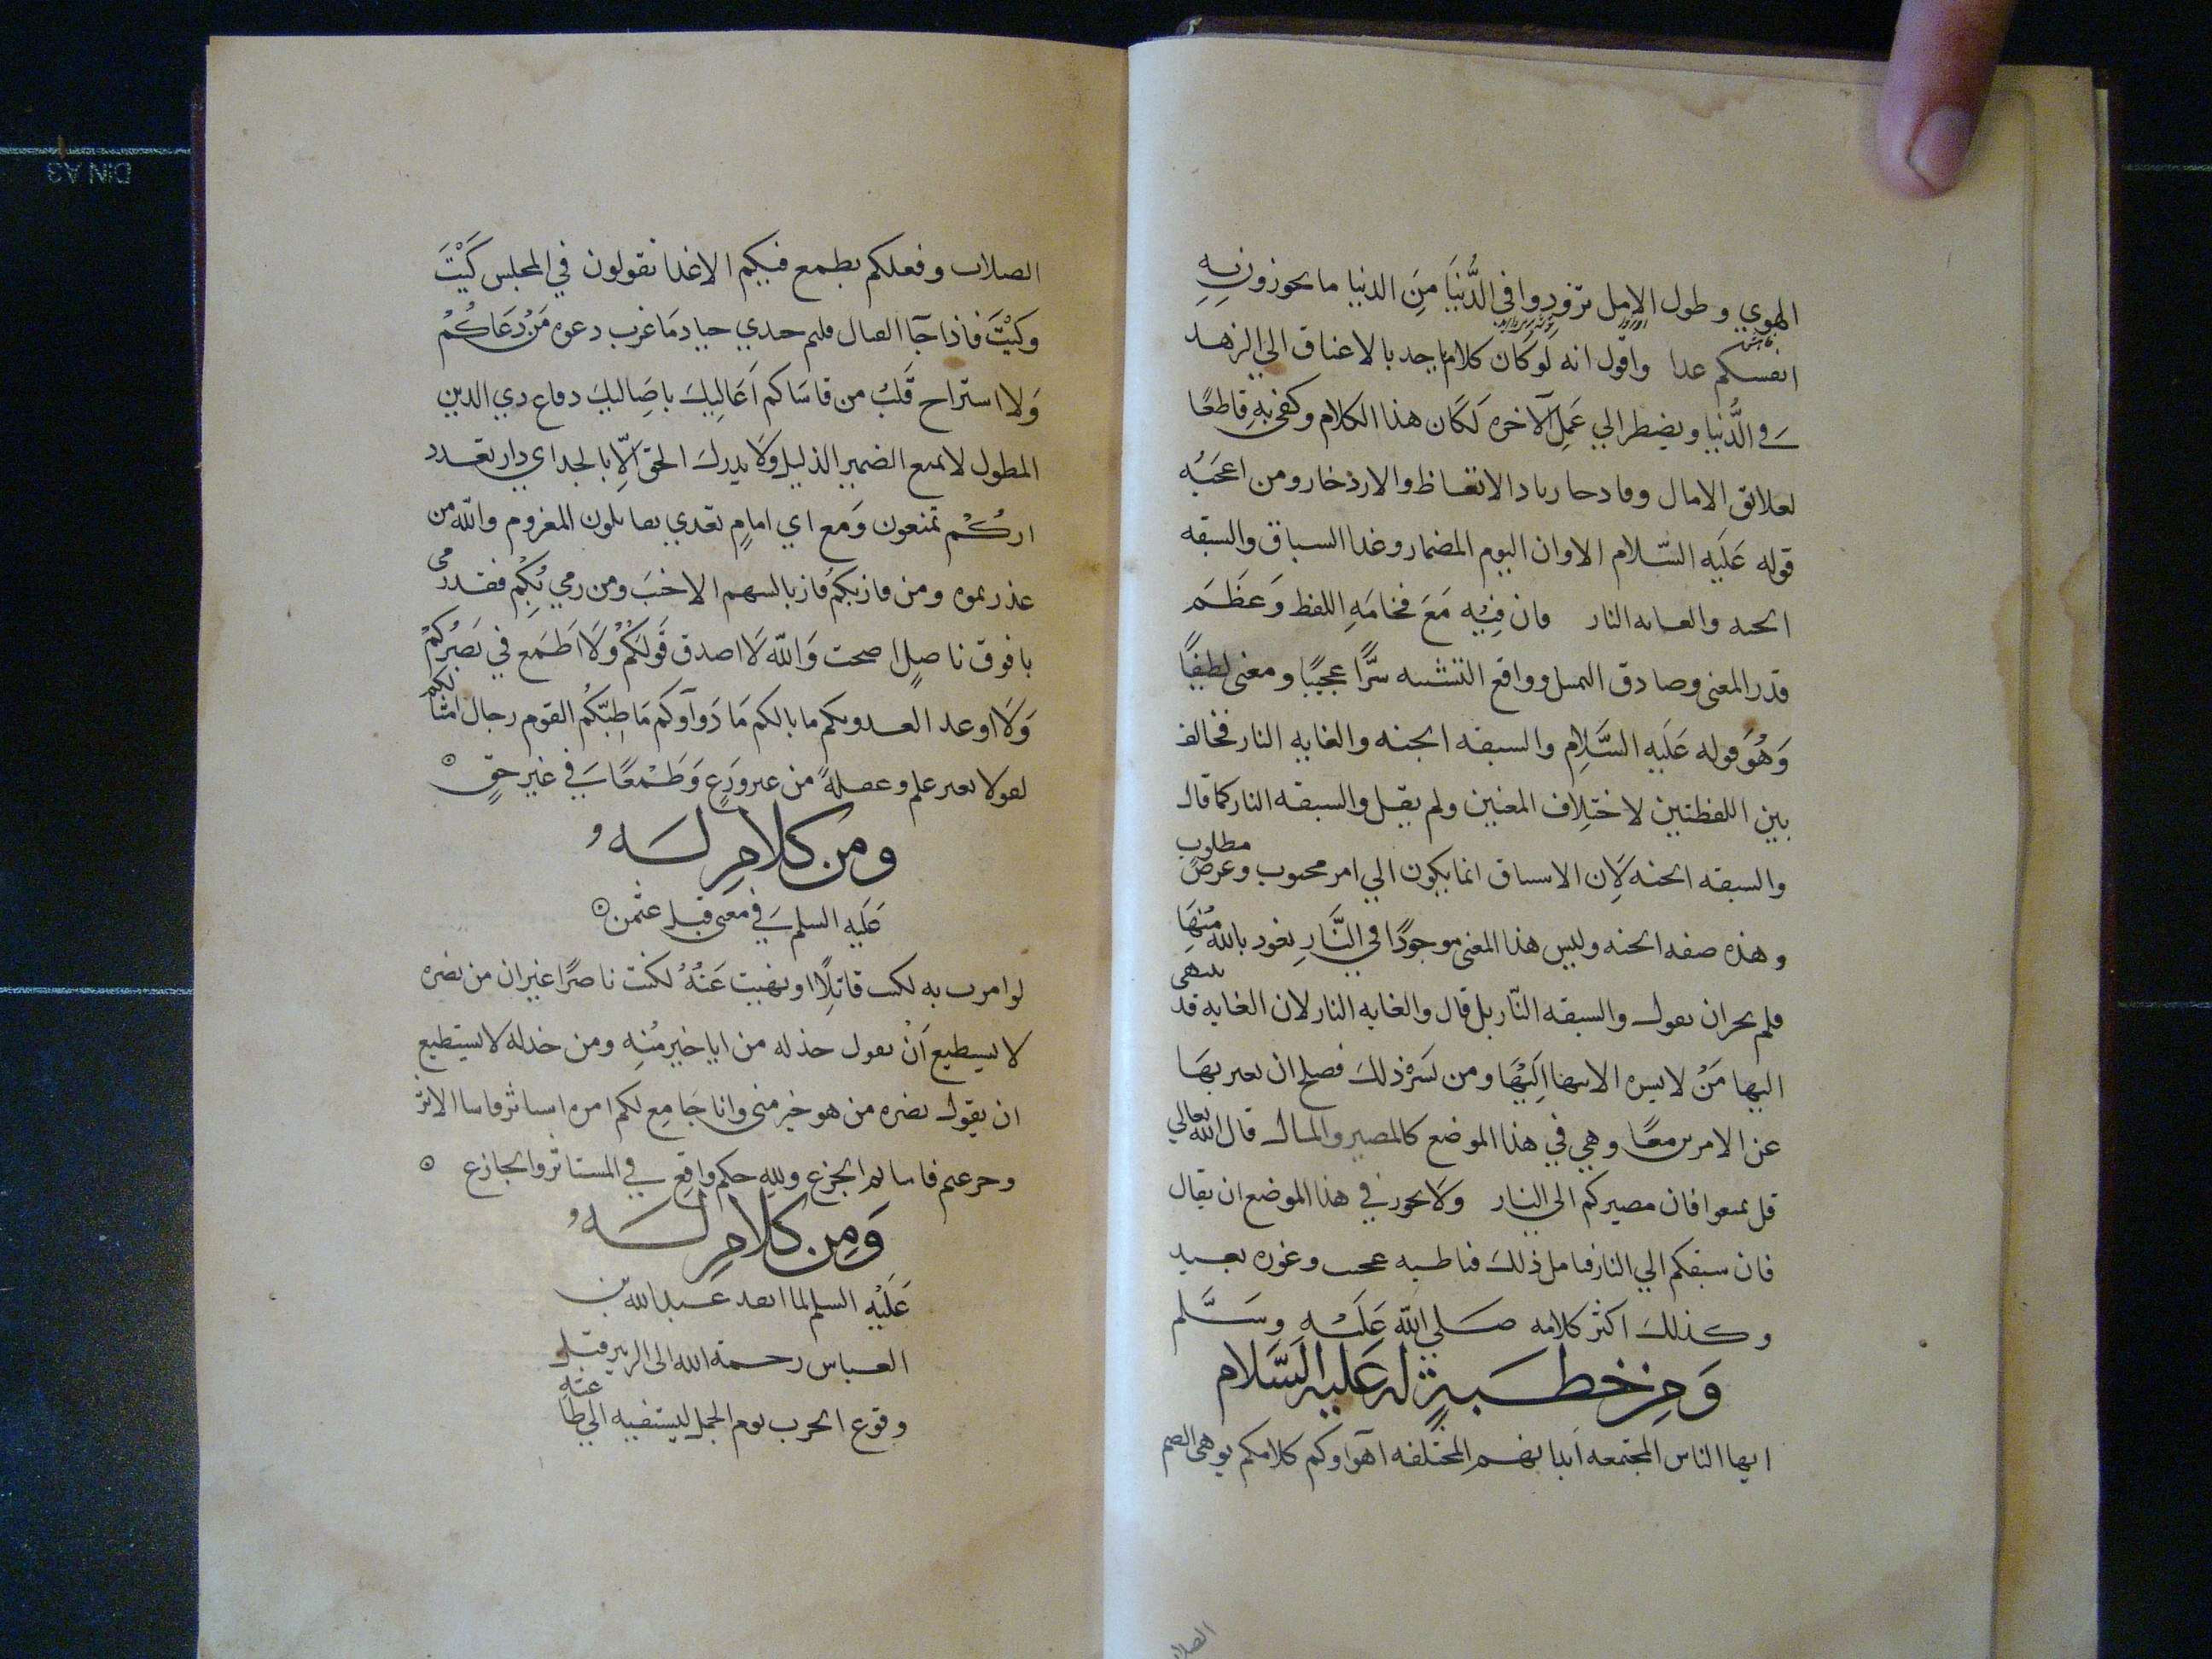 الهوي وطول الامل تزودوا في الدُّنيَا مِنَ الدنيا ما تحوزون بِهِ
انفسكم غدا واقول انه لَو كَان كلام ياخد بالاعناق الي الزهد
فِي الدُّنيا ويضطر الي عَمِل الآخره لَكَان هذا الكلام وكفي بِهِ قاطعًا
لعلائق الامال وقادحا زناد الاتعاظ والازدخار ومن اعجَبُه
قوله عَلَيه السّلام الا وان اليوم المضمار وغدا السباق والسبقه
الجنه والغايه النار فان فِيْه مَعَ فخامَهِ اللفظ وَعَظَم
قدر المعنى وصادق التمثيل وواقع التشبيه سرًّا عجيبًا ومعنى لطيفًا
وَهُوَ قوله عَلَيه السَّلام والسبقه الجنه والغايه النار فخالف
بين اللفظتين لاختِلاف المعنيين ولم يقل والسبقه النار كما قال
والسبقه الجنه لَاِن الاستباق انما يكون الي امر محبوب وغرض مطلوب
وهذه صفه الجنه وليس هذا المعنى موجودًا في النَّارِ نعود بالله مِنْهَا
فلم يجز ان يقول والسبقه النّار بل قال والغايه النار لان الغايه قد ينتهى
اليها مَنْ لا يسره الانتها اِلَيْهَا ومن يَسَره ذلكَ فصلح ان يعبر بهَا
عن الامرين معًا وهي في هذا الموضع كالمصير والمال قال الله تعالي
قل تمتعوا فان مصيركم الى النار ولَا يجوز في هذا الموضع ان يقال
فان سبقتكم الي النار فتامل ذلكَ فباطنه عجيب وغوره بعيد
وكذلكَ اكثر كلامه صَلي الله عَلَيْه وسَلَّم
وَمِن خطبةٍ له عَليه السَّلام
ايها الناس المجتمعه ابدانهم المختلفه آهواوكم كلامكم يوهى الصم
الصلاب وفعلكم يطمع فيكم الاعدا تقولون في المجلس كَيْتَ
وكَيْتَ فاذا جآ القتال قلتم حيدي حياد مَا عزت دعوه مَنْ دَعَاكُمْ
وَلا استراح قَلبُ من قاسَاكم اَعَالِيلَ باضَالِيلَ دفاع ذي الدين
المطول لا يمنع الضيم الذليل وَلَا يدرك الحق اِلّا بالجد اي دار بعد
داركُم تمنعون وَمع اي امامٍ بعدي تقاتلون المغروم والله من
غررتموه ومن فاز بكم فاز بالسهم الاخيَب ومن رمي بُكِم فقد رمى
بافوق ناصلٍ اصبحت وَالله لَا اصدق قَولكُمْ وَلَا اَطمَع في نَصْرُكمْ
وَلَا اوعد العدو بكم ما بالكم مَا دَوآوكم مَا طِبّكُم القوم رجال امثالكم
اقولا بغير علم وغفلةً من غير وَرَعٍ وَطَمْعًا فِي غير حقٍ
ومن كلامِ لَهُ
عَلَيه السلم فِي معنى قتل عثمن
لو امرت به لكنت قاتلًا او نهيت عَنْهُ لكنت ناصرًا غير ان من نصره
لا يسطيع اَنْ يقول خذله من انا خير مُنِه ومن خذله لا يستطيع
ان يقول نصره من هو خير مني وانا جَامِع لكم امره استاثر فاسا الاثر
وجزعتم فاساتم الجزع ولله حكم واقِع في المستاثر والجازع
وَمِن كلامِ لَهُ
عَلَيْه السلم لما انفذ عبد الله بن
العباس رحمة الله الى الزبير قبل
وقوع الحرب يوم الجمل ليستفيه الي طاعته